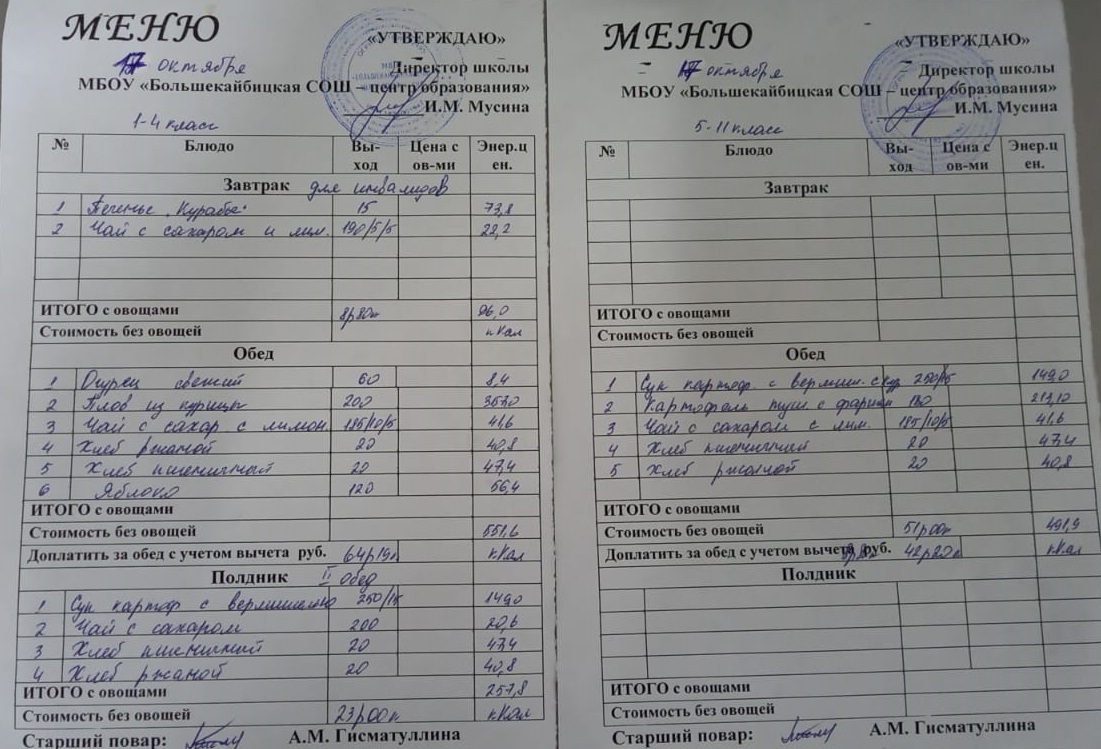 МЕНЮ
«УТВЕРЖДАЮ»
17 октября
Директор школы
МБОУ «Большекайбицкая СОШ – центр образования»
И.М. Мусина
1-4 класс
№ Блюдо Вы-ход Цена с ов-ми Энер.ц ен.
Завтрак для инвалидов
1 Печенье "Курабье" 15 73,8
2 Чай с сахаром и лим. 190/5/5 22,2
ИТОГО с овощами 8р80к 96,0
Стоимость без овощей кКал
Обед
1 Огурец свежий 60 8,4
2 Плов из курицы 200
3 Чай с сахар с лимон. 185/10/5 41,6
4 Хлеб ржаной 20 40,8
5 Хлеб пшеничный 20 47,4
6 Яблоко 120 56,4
ИТОГО с овощами
Стоимость без овощей 551,6
Доплатить за обед с учетом вычета руб. 64р19к кКал
Полдник II обед
1 Суп картоф с вермишелью 250/15 149,0
2 Чай с сахаром 200 20,6
3 Хлеб пшеничный 20 47,4
4 Хлеб ржаной 20 40,8
ИТОГО с овощами 257,8
Стоимость без овощей 23р00к кКал
Старший повар: А.М. Гисматуллина
МЕНЮ
«УТВЕРЖДАЮ»
17 октября
Директор школы
МБОУ «Большекайбицкая СОШ – центр образования»
И.М. Мусина
5-11 класс
№ Блюдо Вы-ход Цена с ов-ми Энер.ц ен.
Завтрак
Обед
1 Суп картоф. с вермиш. с кур 250/15 149,0
2 Картофель туш. с фаршем 180 213,10
3 Чай с сахаром с лим. 185/10/5 41,6
4 Хлеб пшеничный 20 47,4
5 Хлеб ржаной 20 40,8
ИТОГО с овощами
Стоимость без овощей 51р00к 491,9
Доплатить за обед с учетом вычета руб. 42р20к кКал
Полдник
ИТОГО с овощами
Стоимость без овощей
Старший повар: А.М. Гисматуллина